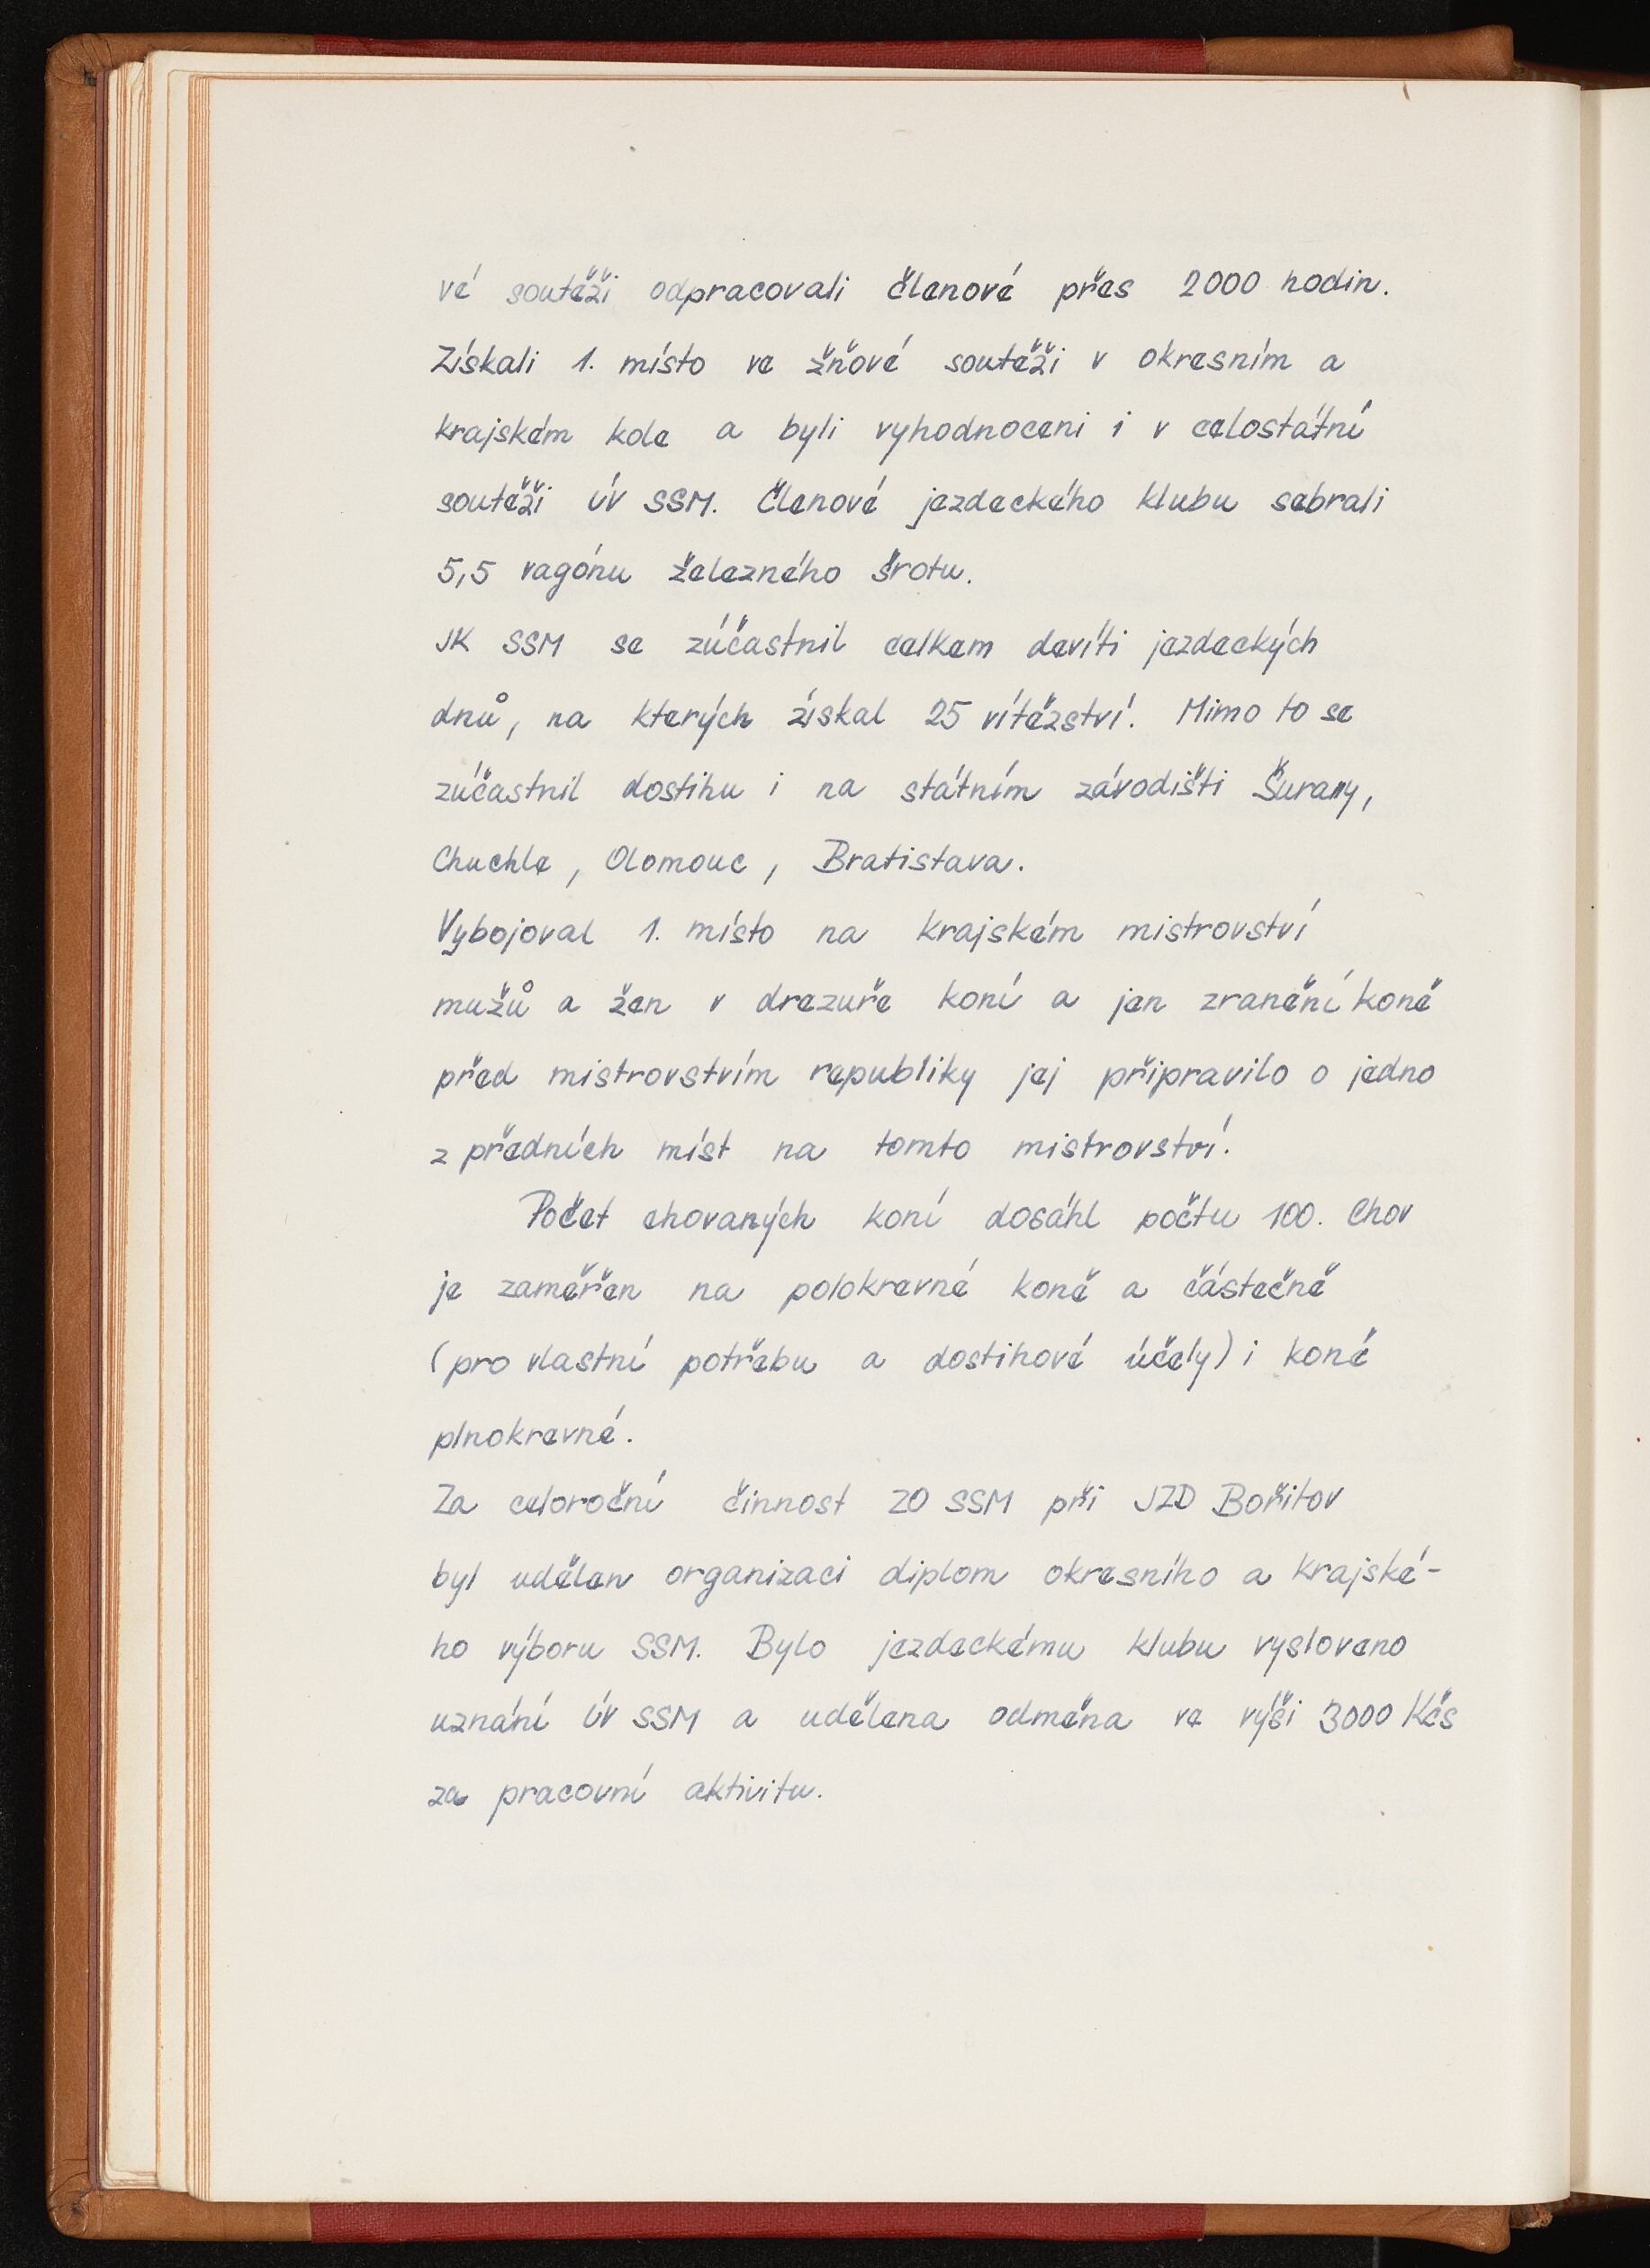 vé soutěži odpracovali členové přes 2000 hodin.
Získali 1. místo ve žňové soutěži v okresním a
krajském kole a byli vyhodnoceni i v celostátní
soutěži ÚV SSM. Členové jezdeckého klubu sebrali
5,5 vagónu železného šrotu.
JK SSM se zúčastnil celkem devíti jezdeckých
dnů, na kterých získal 25 vítězství. Mimo to se
zúčastnil dostihu i na státním závodišti Šurany,
Chuchle, Olomouc, Bratistava.
Vybojoval 1. místo na krajském mistrovství
mužů a žen v drezuře koní a jen zranění koně
před mistrovstvím republiky jej připravilo o jedno
z předních míst na tomto mistrovství.
Počet chovaných koní dosáhl počtu 100. Chov
je zaměřen na polokrevné koně a částečně
(pro vlastní potřebu a dostihové účely) i koně
plnokrevné.
Za celoroční činnost ZO SSM při JZD Bořitov
byl udělen organizaci diplom okresního a krajské-
ho výboru SSM. Bylo jezdeckému klubu vysloveno
uznání ÚV SSM a udělena odměna ve výši 3000 Kčs
za pracovní aktivitu.